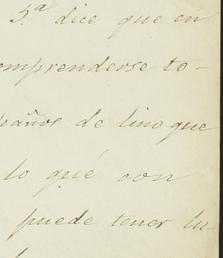 5.ª dice que en
omprenderse to-
paños de lino que
lo qué con
puede tener lu